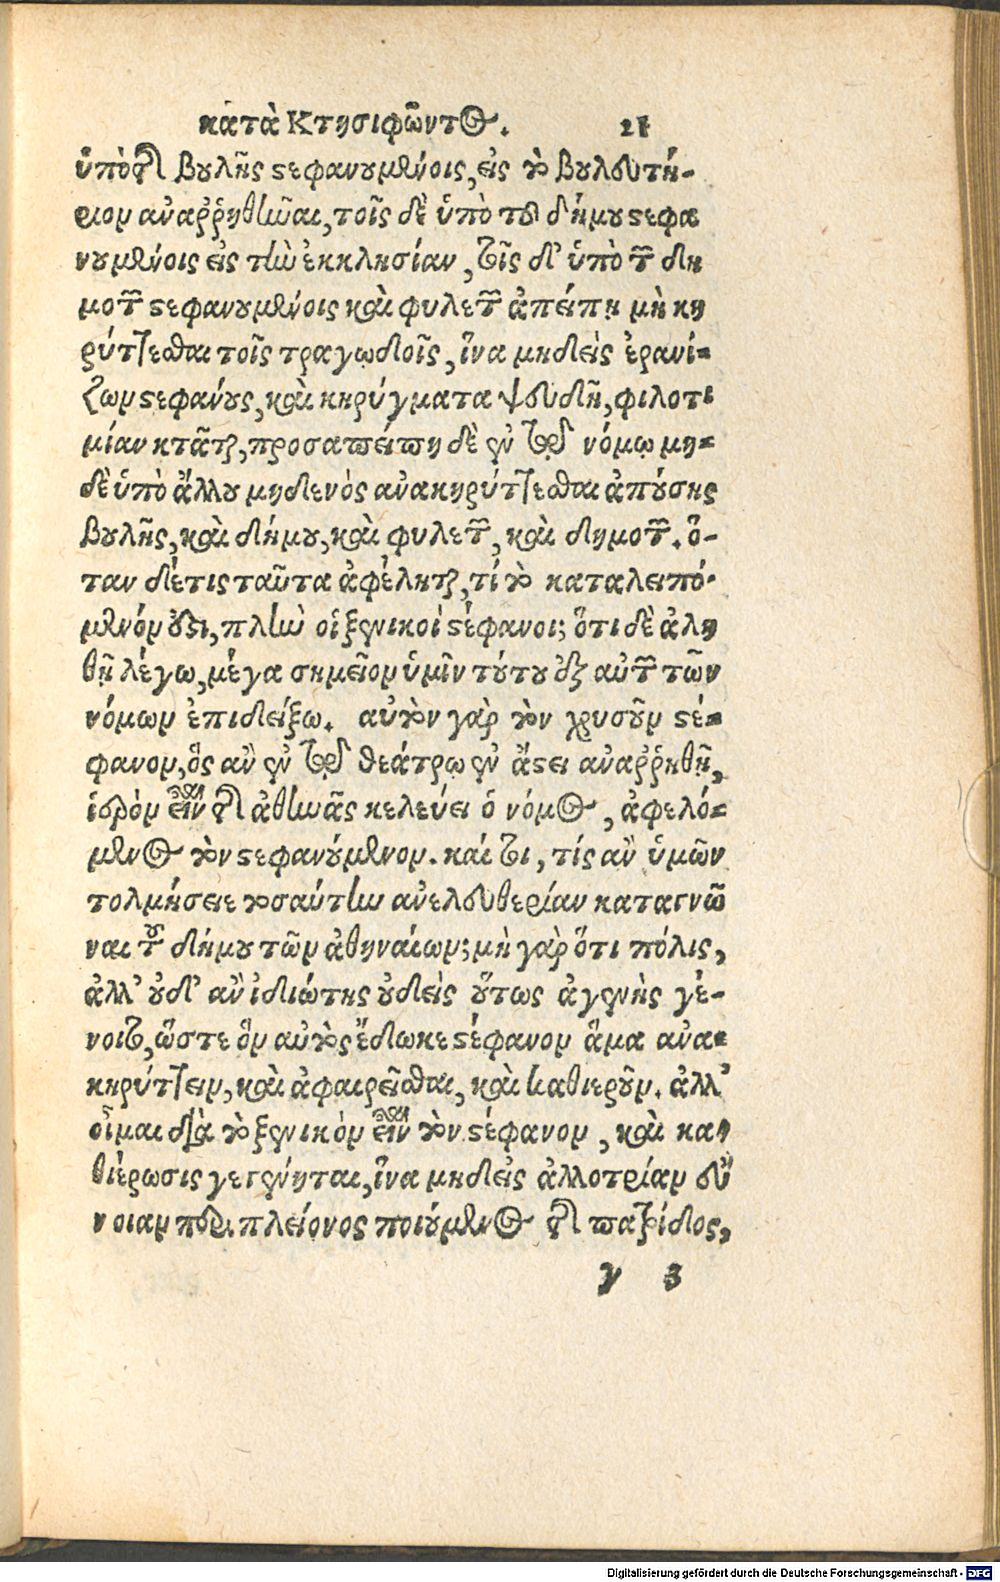 κατὰ Κτησιφῶντος. 21
ὑπὸ τῆς βουλῆς στεφανουμένοις, εἰς τὸ βουλευτή-
ριον ἀναῤῥηθῆναι, τοῖς δὲ ὑπὸ τοῦ δήμου στεφα
νουμένοις εἰς τὴν ἐκκλησίαν, τοῖς δ' ὑπὸ τῶν δη
μοτῶν στεφανουμένοις καὶ φυλετῶν ἀπείπῃ μὴ κη
ρύττεσθαι τοῖς τραγῳδοῖς, ἵνα μηδεὶς ἐρανί-
ζων στεφάνους, καὶ κηρύγματα ψευδῆ, φιλοτι
μίαν κτᾶται, προσαπείπῃ δὲ ἐν τῷ νόμῳ μη-
δὲ ὑπὸ ἄλλου μηδενὸς ἀνακηρύττεσθαι ἀπούσης
βουλῆς, καὶ δήμου, καὶ φυλετῶν, καὶ δημοτῶν. ὅ-
ταν δέ τις ταῦτα ἀφέληται, τί τὸ καταλειπό-
μενόν ἐστι, πλὴν οἱ ξενικοὶ στέφανοι; ὅτι δὲ ἀλη
θῆ λέγω, μέγα σημεῖον ὑμῖν τούτου ἐξ αὐτῶν τῶν
νόμων ἐπιδείξω. αὐτὸν γὰρ τὸν χρυσοῦν στέ-
φανον, ὃς ἂν ἐν τῷ θεάτρῳ ἐν ἄστει ἀναῤῥηθῇ,
ἱερὸν εἶναι τῆς ἀθηνᾶς κελεύει ὁ νόμος, ἀφελό-
μενος τὸν στεφανούμενον. καί τοι, τίς ἂν ὑμῶν
τολμήσειε τοσαύτην ἀνελευθερίαν καταγνῶ
ναι τοῦ δήμου τῶν ἀθηναίων; μὴ γὰρ ὅτι πόλις,
ἀλλ' οὐδ' ἂν ἰδιώτης οὐδεὶς οὕτως ἀγενὴς γέ-
νοιτο, ὥστε ὃν αὐτὸς ἔδωκε στέφανον ἅμα ἀνα-
κηρύττειν, καὶ ἀφαιρεῖσθαι, καὶ καθιεροῦν. ἀλλ'
οἶμαι διὰ τὸ ξενικὸν εἶναι τὸν στέφανον, καὶ κα-
θιέρωσις γεγένηται, ἵνα μηδεὶς ἀλλοτρίαν εὔ
νοιαν περὶ πλείονος ποιούμενος τῆς πατρίδος,
γ 3
Digitalisierung gefördert durch die Deutsche Forschungsgemeinschaft - DFG